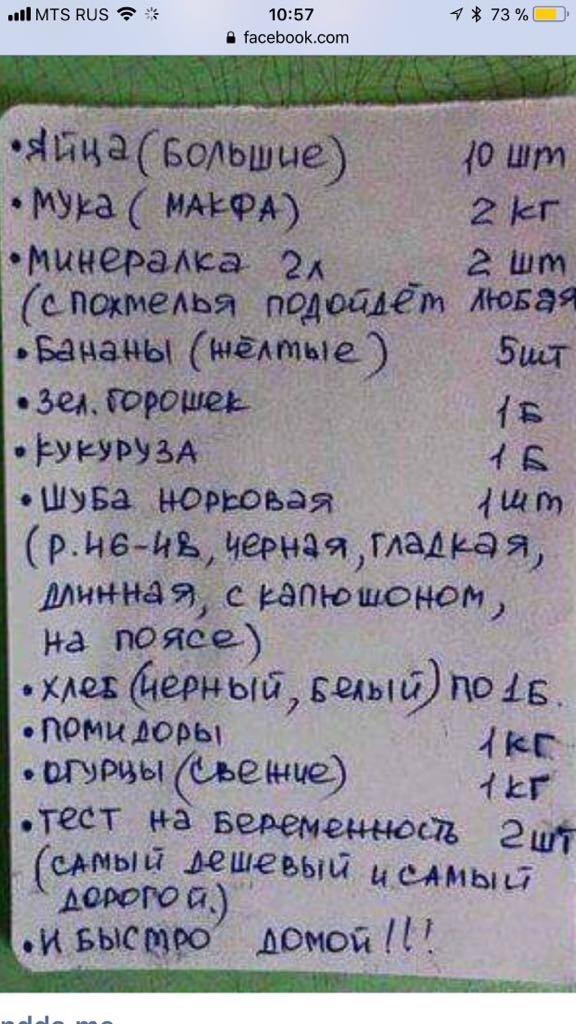 MTS RUS 10:57 73 %
facebook.com
•ЯЙЦА (БОЛЬШИЕ) 10 ШТ
•МУКА ( МАКФА) 2 КГ
•МИНЕРАЛКА 2Л 2 ШТ
(С ПОХМЕЛЬЯ ПОДОЙДЁТ ЛЮБАЯ
•БАНАНЫ (ЖЁЛТЫЕ) 5ШТ
•ЗЕЛ. ГОРОШЕК 1 Б
•КУКУРУЗА 1 Б
•ШУБА НОРКОВАЯ 1 ШТ
(Р.46-48, ЧЕРНАЯ, ГЛАДКАЯ,
ДЛИННАЯ, С КАПЮШОНОМ,
НА ПОЯСЕ)
•ХЛЕБ (ЧЕРНЫЙ, БЕЛЫЙ) ПО 1 Б.
•ПОМИДОРЫ 1 КГ
•ОГУРЦЫ (СВЕЖИЕ) 1 КГ
•ТЕСТ НА БЕРЕМЕННОСТЬ 2 ШТ
(САМЫЙ ДЕШЕВЫЙ И САМЫЙ
ДОРОГОЙ.)
•И БЫСТРО ДОМОЙ!!!